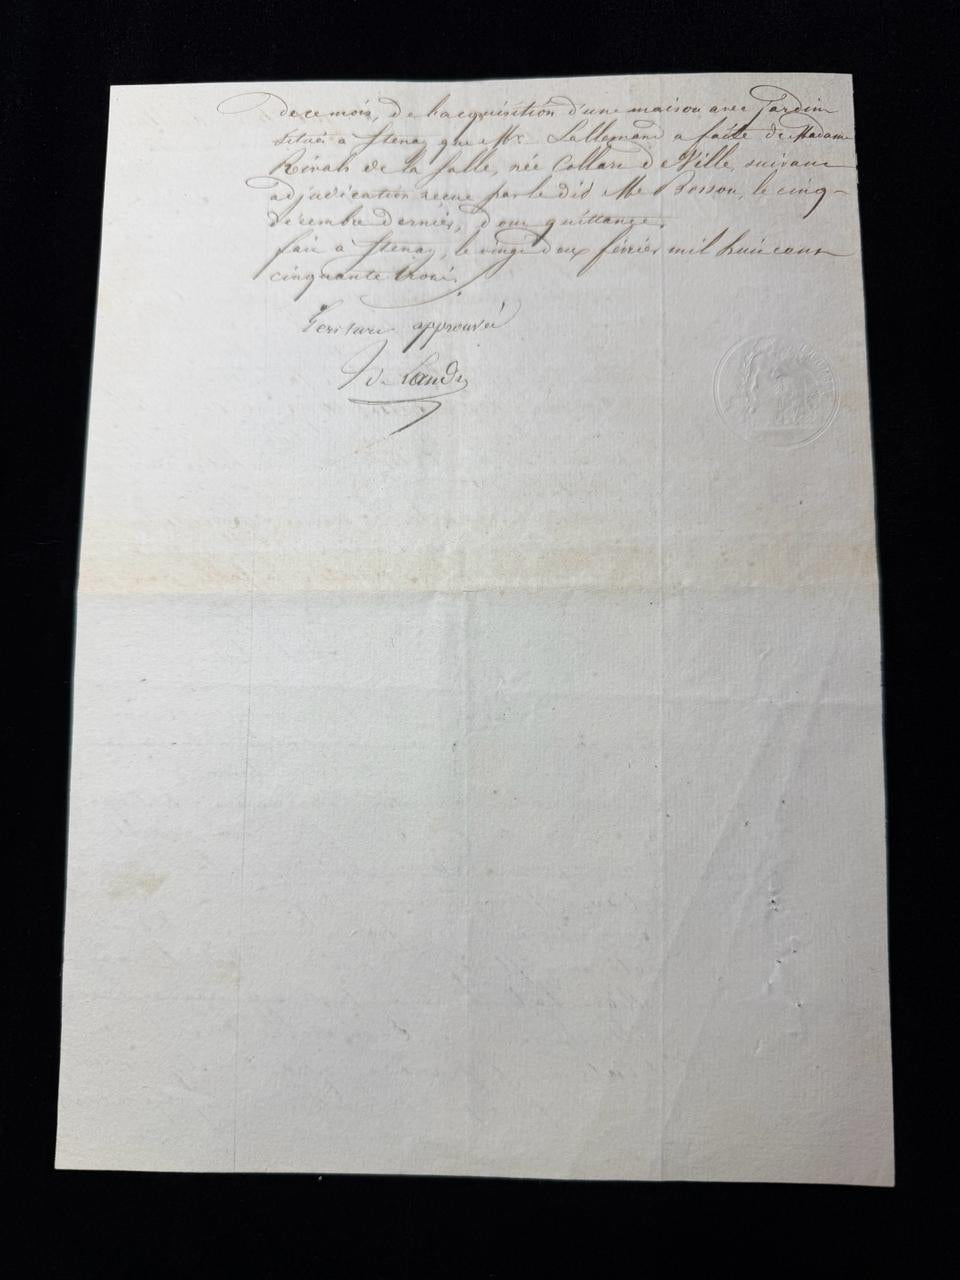 de ce mois, de l'acquisition d'une maison avec jardin
située à Stenay que Mr. Lallemand a faite de Madame
de la Salle, née Collard de Ville, suivant
adjudication reçue par le dit Me Bosson, le cinq
décembre dernier, dont quittance.
fait à Stenay, le vingt deux février mil huit cent
cinquante trois.
Ecriture approuvée